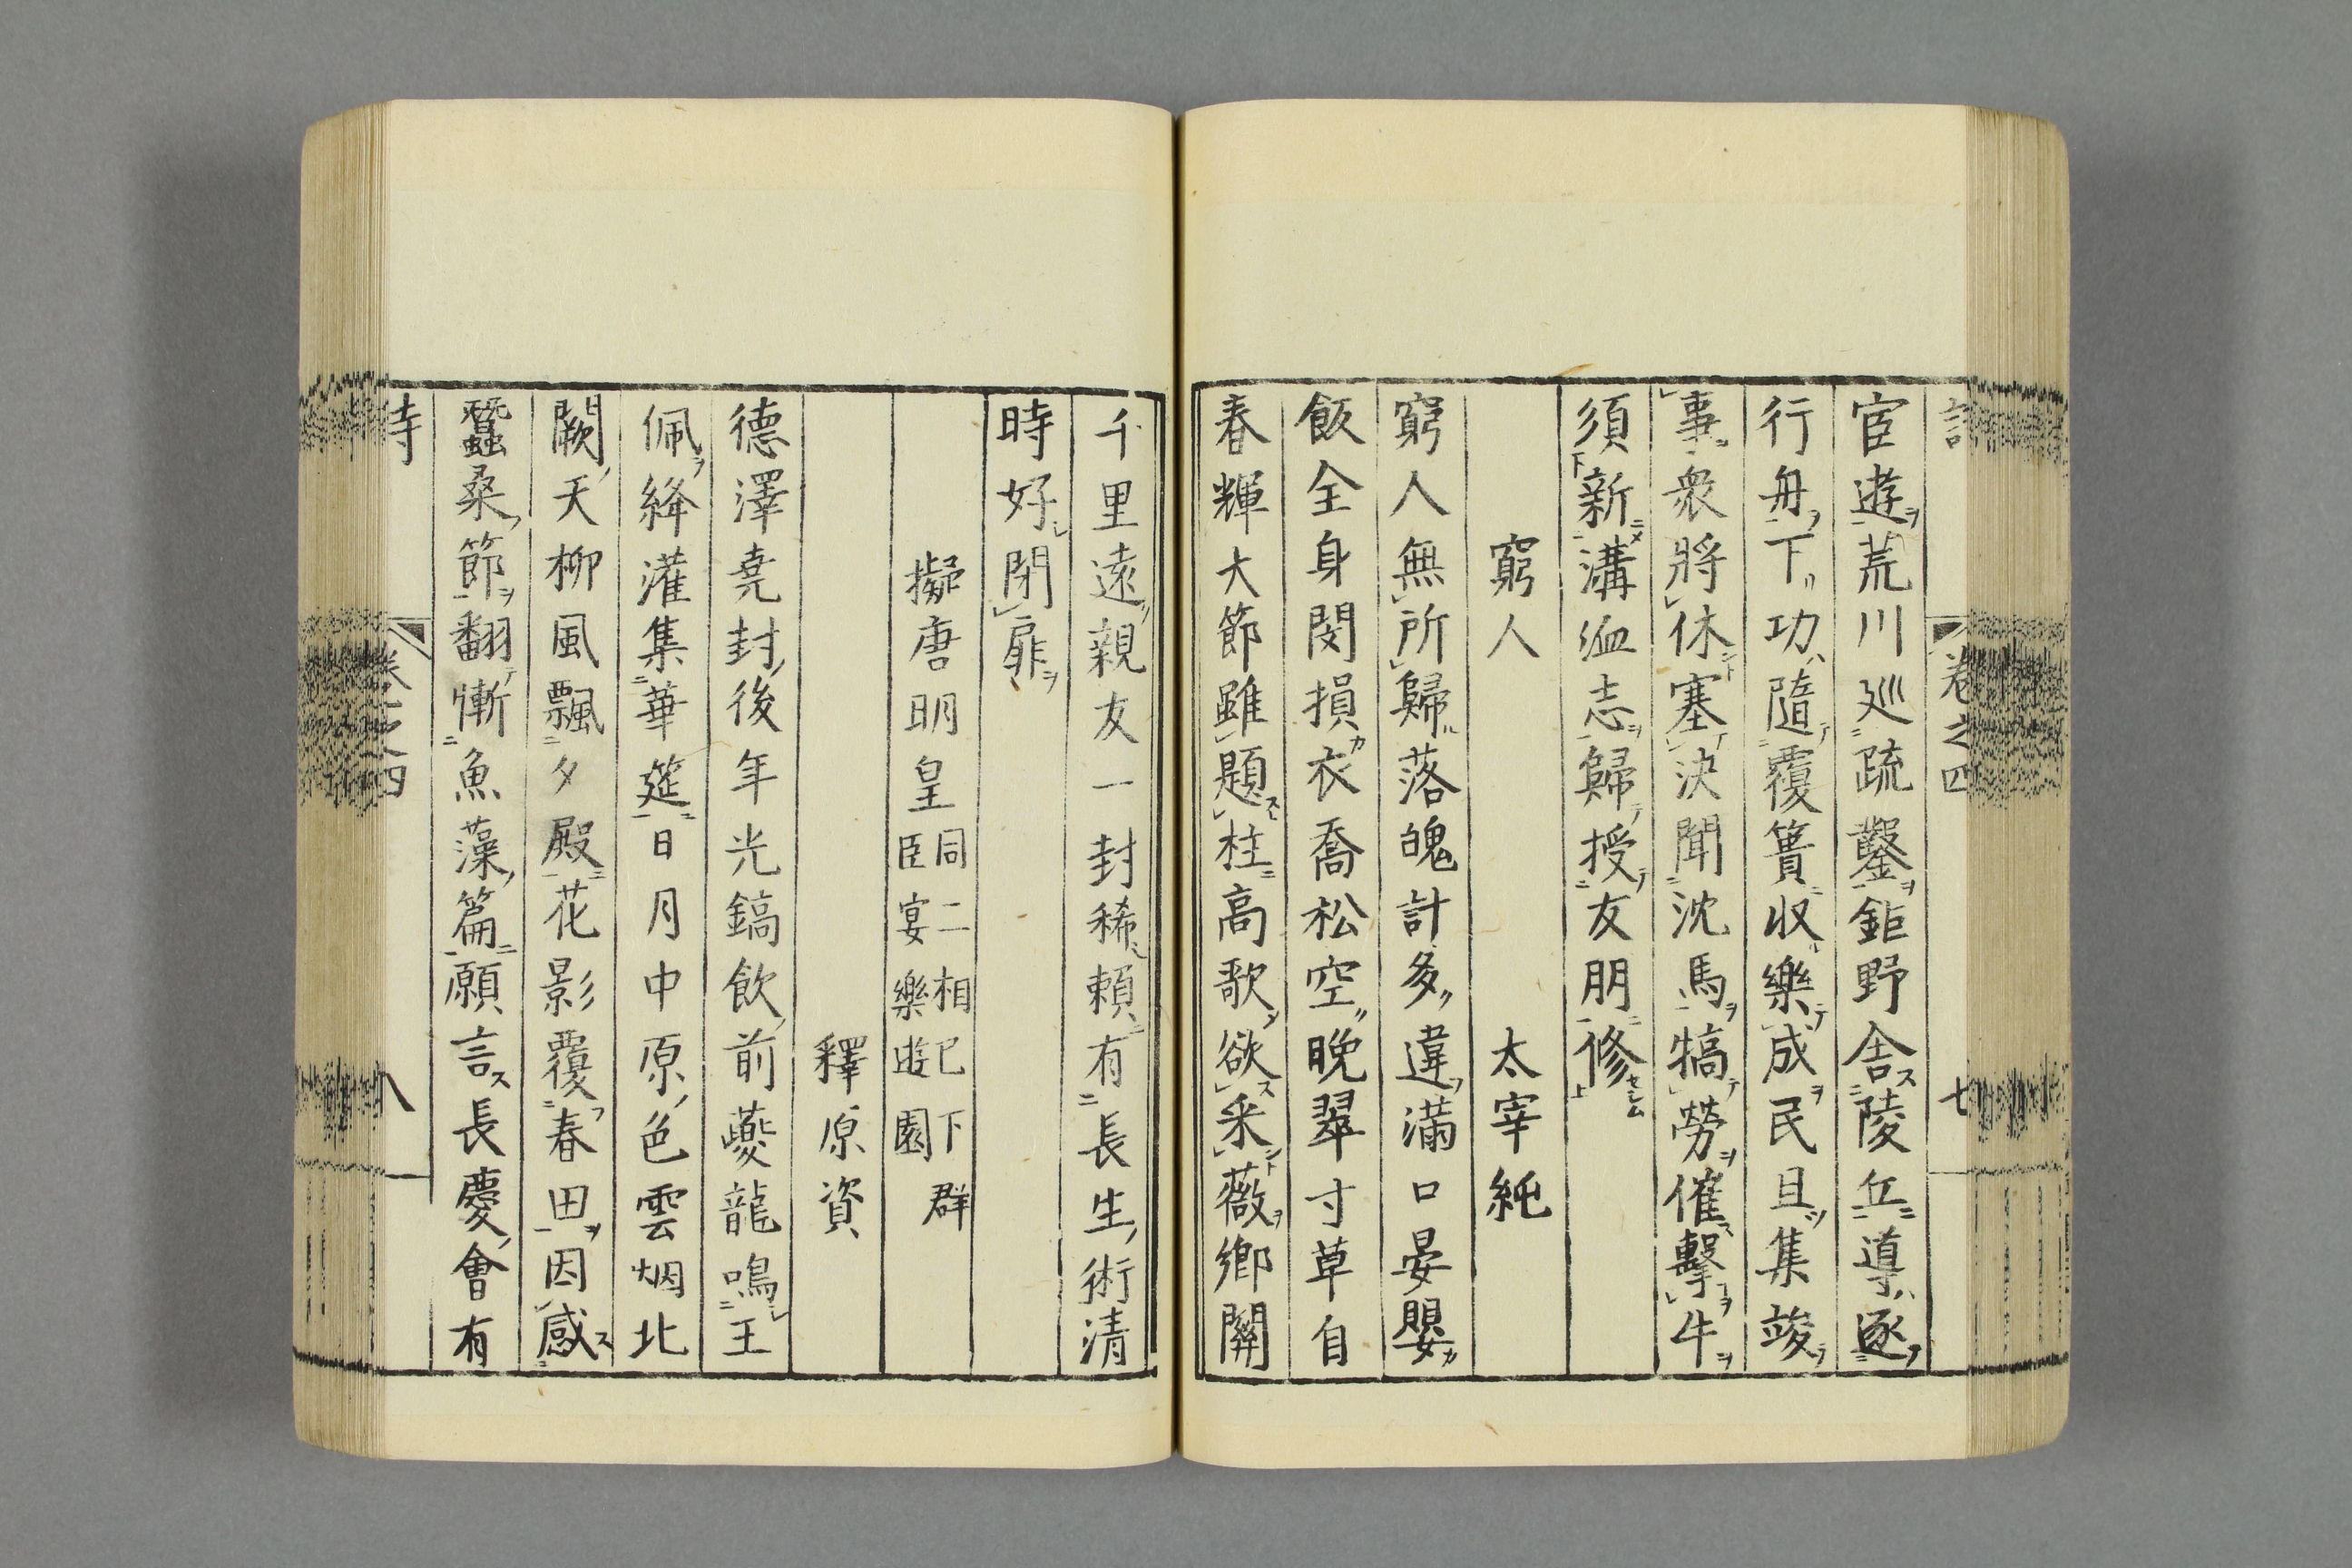 卷之四 七
宦遊荒川巡疏鑿鉅野舎陵丘導逐
行舟下功隨覆簣収樂成民且集竣
事衆將休塞決聞沈馬犒勞催擊牛
須新溝洫志歸授友朋修
窮人 太宰純
窮人無所歸落魄計多違滿口晏嬰
飯全身閔損衣喬松空晚翠寸草自
春輝大節雖題柱高歌欲采薇鄉關
千里遠親友一封稀頼有長生術清
時好閉扉
擬唐明皇同二相已下群臣宴樂遊園
釋原資
德澤堯封後年光鎬飲前夔龍鳴王
佩絳灌集華筵日月中原色雲烟北
闕天柳風飄夕殿花影覆春田因感
蠶桑節翻慚魚藻篇願言長慶會有
卷之四 八